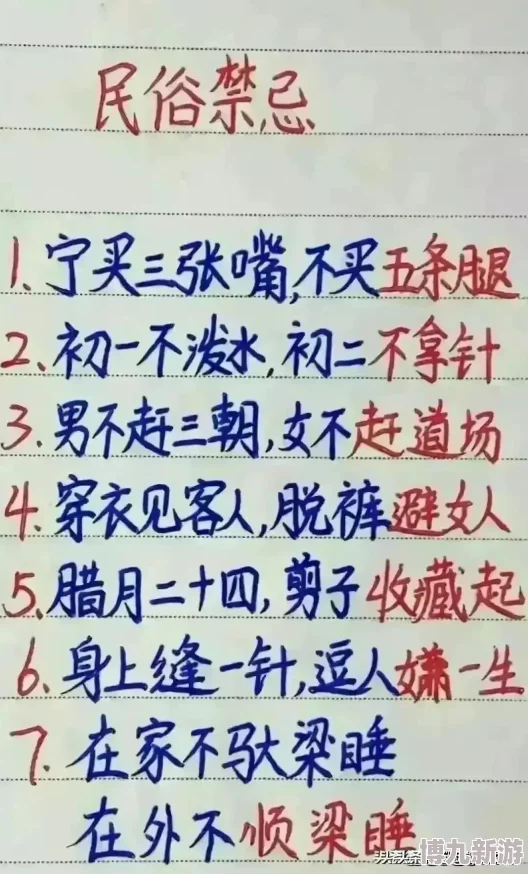 民俗禁忌
1.宁买三张嘴,不买五条腿
2.初一不泼水,初二不拿针
3.男不赶三朝,女不赶道场
4.穿衣见客人,脱裤避女人
5.腊月二十四,剪子收藏起
6.身上缝一针,逗人嫌一生
7.在家不驮梁睡
在外不顺梁睡
博九新游